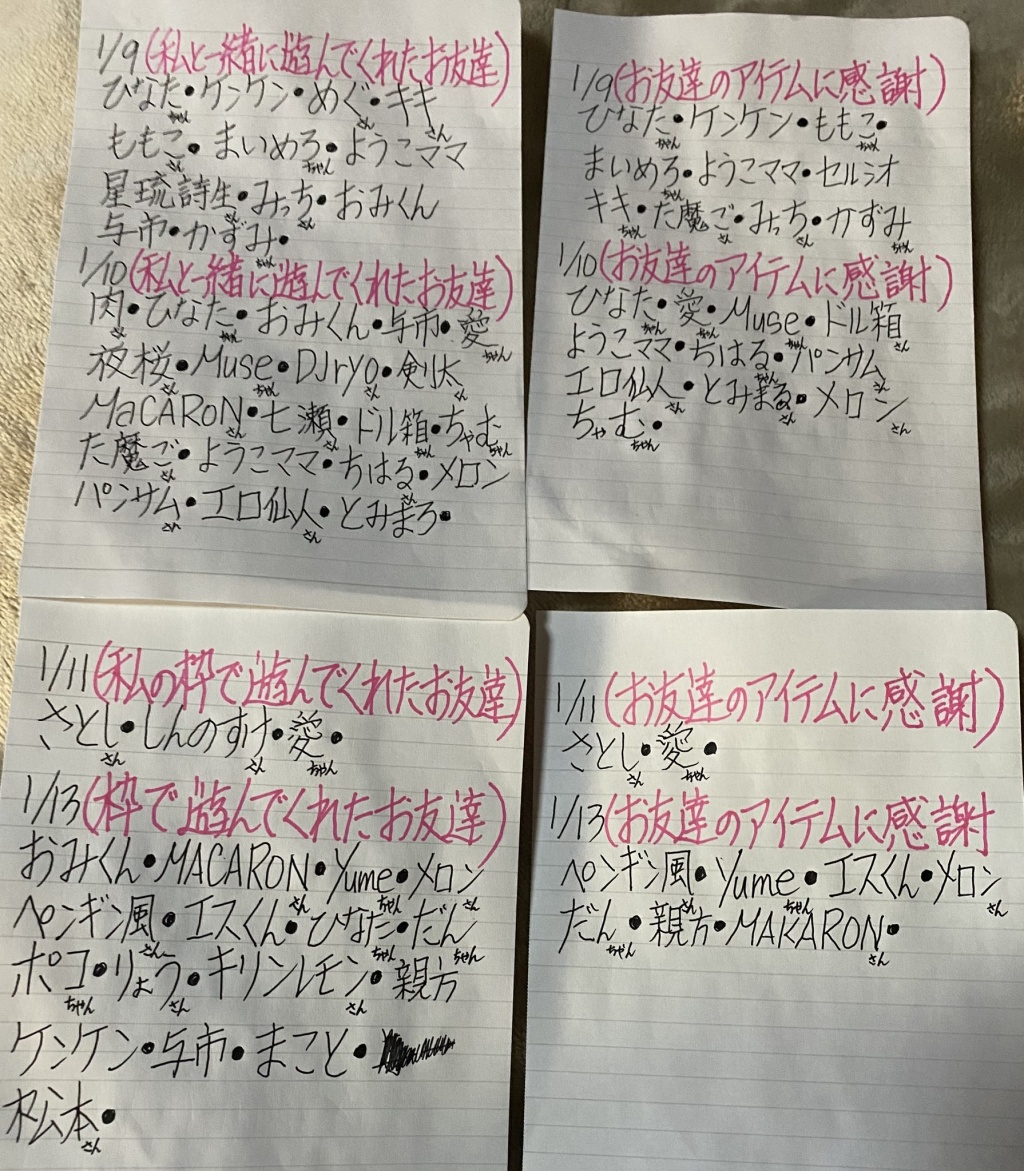 1/9(私と一緒に遊んでくれたお友達)
ひなたちゃん・ケンケン・めぐさん・キキさん
ももこさん・まいめろちゃん・ようこママ
星琉詩生さん・みっちさん・おみくん
与市・かずみちゃん・
1/10(私と一緒に遊んでくれたお友達)
肉さん・ひなたちゃん・おみくん・与市・愛ちゃん
夜桜さん・Museちゃん・DJryoさん・剣汰さん
MaCARoNさん・七瀬さん・ドル箱さん・ちゃむちゃん
た魔ごさん・ようこママ・ちはるさん・メロン
パンサムさん・エロ仙人さん・とみまろ・
1/9(お友達のアイテムに感謝)
ひなたちゃん・ケンケン・ももこちゃん・
まいめろちゃん・ようこママ・セルシオ
キキちゃん・た魔ごさん・みっちさん・かずみちゃん
1/10(お友達のアイテムに感謝)
ひなたちゃん・愛ちゃん・Museちゃん・ドル箱さん
ようこママ・ちはるさん・パンサムさん
エロ仙人さん・とみまるさん・メロンさん
ちゃむちゃん・
1/11(私の枠で遊んでくれたお友達)
さとしさん・しんのすけさん・愛ちゃん・
1/13(枠で遊んでくれたお友達)
おみくん・MACARONさん・Yumeちゃん・メロンさん
ペンギン風さん・エスくん・ひなたちゃん・だんちゃん
ポコちゃん・りょうさん・キリンレモンさん・親方
ケンケン・与市・まこと・
松本さん・
1/11(お友達のアイテムに感謝)
さとしさん・愛ちゃん・
1/13(お友達のアイテムに感謝
ペンギン風さん・Yumeちゃん・エスくん・メロンさん
だんちゃん・親方・MAKARONさん・